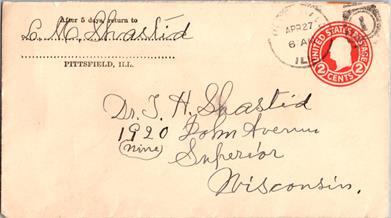 After 5 days, return to
L. M. Shastid
PITTSFIELD, ILL.
APR 27
6 A
ILL
UNITED STATES POSTAGE
2 CENTS 2
Dr. T. H. Shastid
1920 John Avenue
(nine)
Superior
Wisconsin.